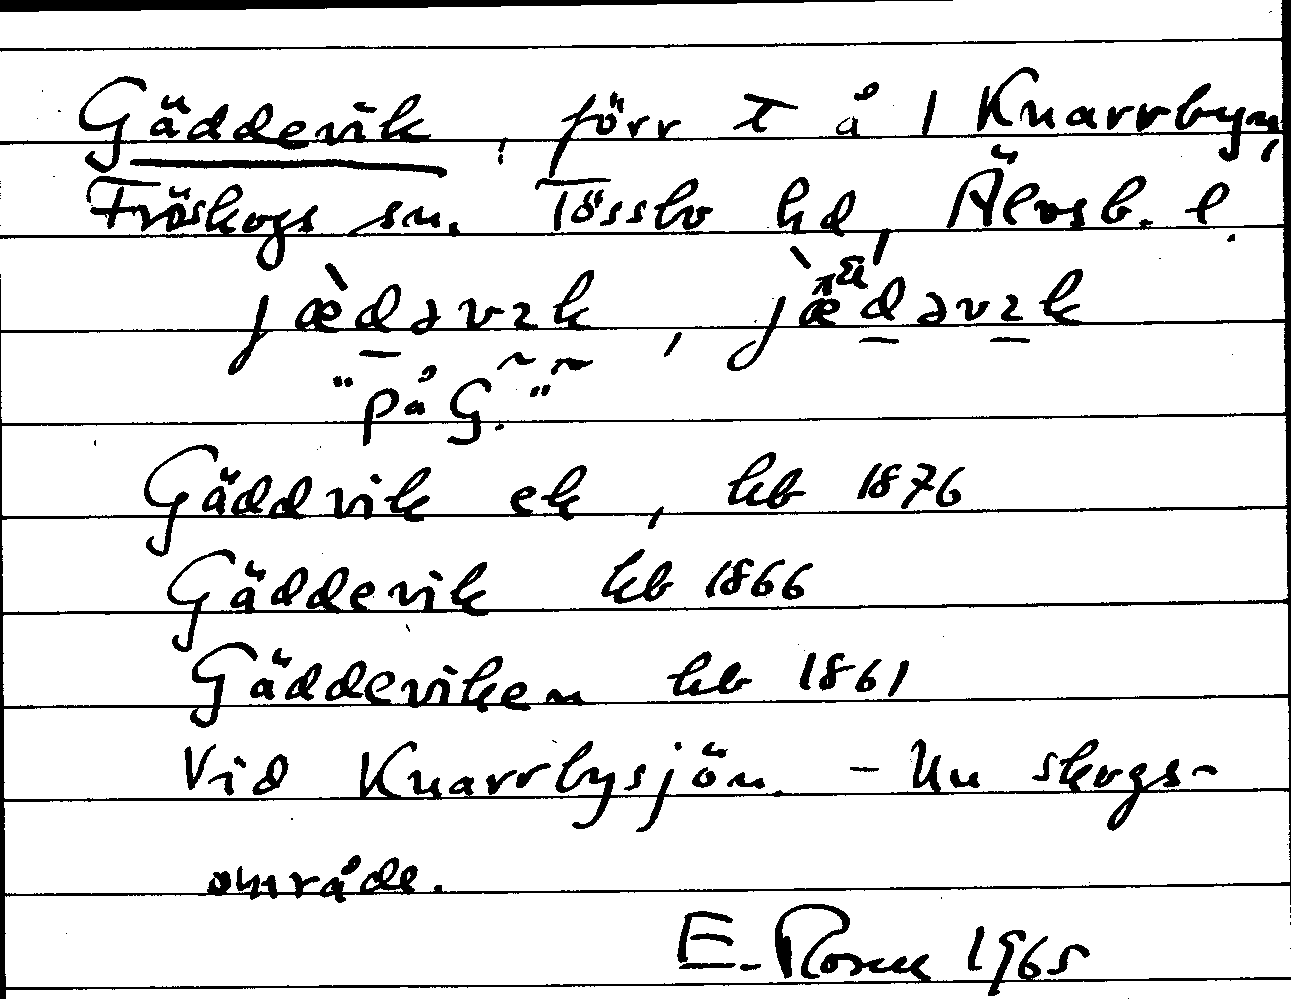 Gäddevik, förr t å 1 Knarrbyn,
Fröskogs sn. Tössbo hd, Älvsb. l.
jæ̀dəvɪk, jæ̀dəvɪk
"på G."
Gäddvik ek, hb 1876
Gäddevik hb 1866
Gäddeviken hb 1861
Vid Knarrbysjön. - Nu skogs-
område.
E. 1965